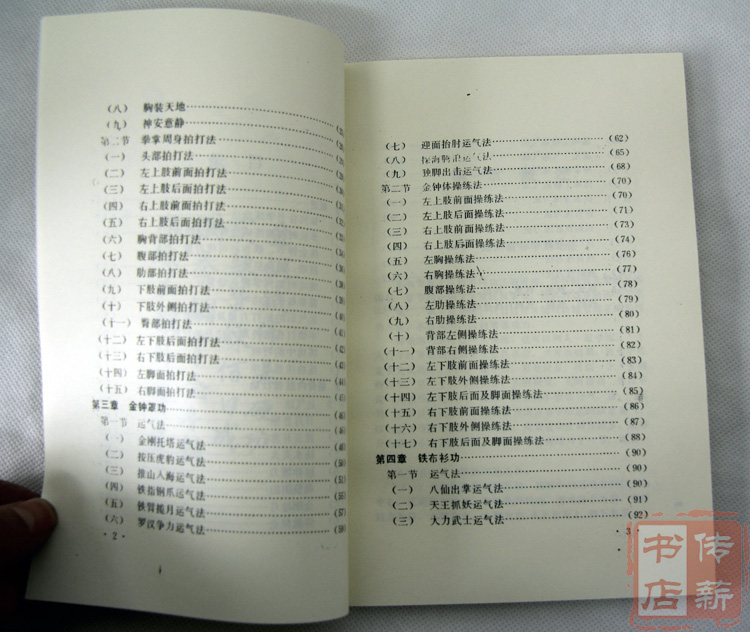 （八） 胸装天地
（九） 神安意静
第二节 拳掌周身拍打法
（一） 头部拍打法
（二） 左上肢前面拍打法
（三） 左上肢后面拍打法
（四） 右上肢前面拍打法
（五） 右上肢后面拍打法
（六） 胸背部拍打法
（七） 腹部拍打法
（八） 肋部拍打法
（九） 下肢前面拍打法
（十） 下肢外侧拍打法
（十一） 臀部拍打法
（十二） 左下肢后面拍打法
（十三） 右下肢后面拍打法
（十四） 左脚面拍打法
（十五） 右脚面拍打法
第三章 金钟罩功
第一节 运气法
（一） 金刚托塔运气法
（二） 按压虎豹运气法
（三） 推山入海运气法
（四） 铁指钢爪运气法
（五） 铁臂揽月运气法
（六） 罗汉争力运气法
· 2 ·
（七） 迎面抬肘运气法 （62）
（八） 运气法 （65）
（九） 独脚出击运气法 （68）
第二节 金钟体操练法 （70）
（一） 左上肢前面操练法 （70）
（二） 左上肢后面操练法 （71）
（三） 右上肢前面操练法 （73）
（四） 右上肢后面操练法 （74）
（五） 左胸操练法 （76）
（六） 右胸操练法 （77）
（七） 腹部操练法 （78）
（八） 左肋操练法 （79）
（九） 右肋操练法 （80）
（十） 背部左侧操练法 （81）
（十一） 背部右侧操练法 （82）
（十二） 左下肢前面操练法 （83）
（十三） 左下肢外侧操练法 （84）
（十四） 左下肢后面及脚面操练法 （85）
（十五） 右下肢前面操练法 （86）
（十六） 右下肢外侧操练法 （87）
（十七） 右下肢后面及脚面操练法 （88）
第四章 铁布衫功 （90）
第一节 运气法 （90）
（一） 八仙出掌运气法 （90）
（二） 天王抓妖运气法 （91）
（三） 大力武士运气法 （92）
· 3
传薪
书店